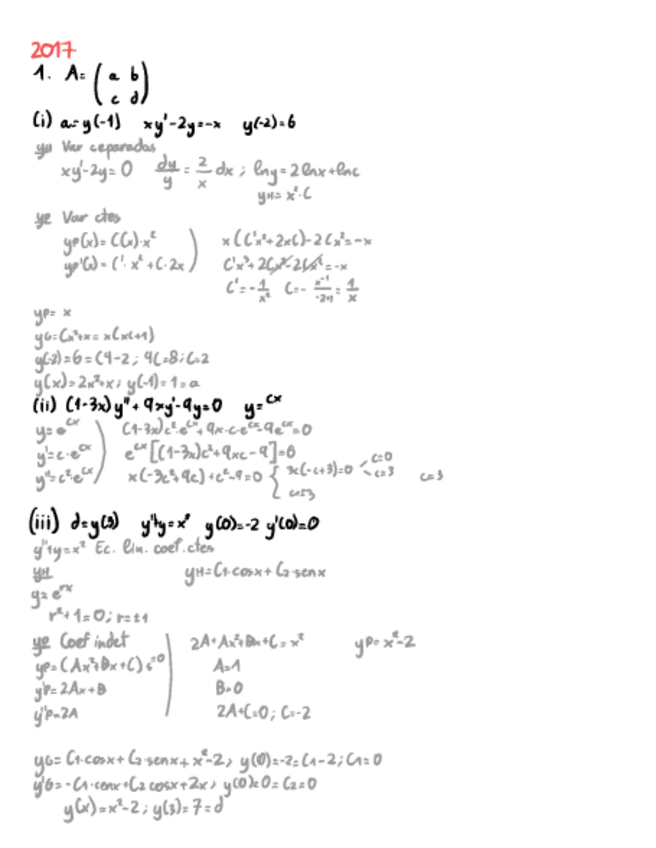 2017
1. A= ( a b
c d )
(i) a=y(-1) xy'-2y=-x y(-2)=6
yH Var ceparadas
xy'-2y=0 dy/y = 2/x dx ; lny=2lnx+lnc
yH= x²·C
yp Var ctes
yp(x)=C(x)·x² x(C'x²+2xC)-2Cx²=-x
yp'(x)=C'·x²+C·2x C'x³+2Cx²-2Cx²=-x
C'=-1/x² C=- x⁻¹/-2+1 = 1/x
yp= x
yG=Cx²+x= x(xC+1)
y(-2)=6=C4-2; 4C=8; C=2
y(x)=2x²+x; y(-1)=1=a
(ii) (1-3x)y''+9xy'-9y=0 y=e^cx
y=e^cx (1-3x)c²e^cx+9x·c·e^cx-9e^cx=0
y'=c·e^cx e^cx[(1-3x)c²+9xc-9]=0
y''=c²·e^cx x(-3c²+9c)+c²-9=0 3c(-c+3)=0 c=0 c=3 c=3
c=±3
(iii) d=y(3) y''+y=x² y(0)=-2 y'(0)=0
y''+y=x² Ec. lin. coef. ctes
yH yH=C1·cosx+C2·senx
y=e^rx
r²+1=0; r=±i
yp Coef indet 2A+Ax²+Bx+C=x² yp=x²-2
yp=(Ax²+Bx+C) s=0 A=1
y'p=2Ax+B B=0
y''p=2A 2A+C=0; C=-2
yG= C1·cosx+C2·senx+x²-2; y(0)=-2=C1-2; C1=0
y'G=-C1·senx+C2 cosx+2x; y'(0)=0=C2=0
y(x)=x²-2; y(3)=7=d